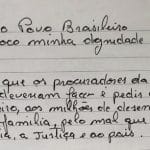 o Povo Brasileiro
oco minha dignidade
que os procuradores da
deveriam fazer é pedir
iro, aos milhões de desem
família, pelo mal que
ia, a Justiça e ao país.